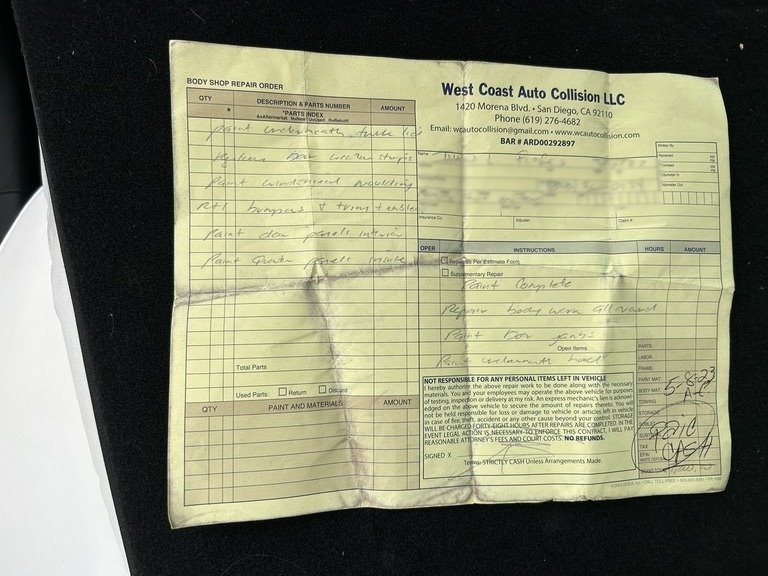 BODY SHOP REPAIR ORDER
QTY * DESCRIPTION & PARTS NUMBER AMOUNT
*PARTS INDEX
A=Aftermarket N=New U=Used R=Rebuilt
Paint underneath trunk lid
Replace Door weather strips
Paint windshield moulding
R+I bumpers & trim + emblems
Paint door panels interior
Paint Quarter panels inside
Total Parts
Used Parts: Return Discard
QTY PAINT AND MATERIALS AMOUNT
West Coast Auto Collision LLC
1420 Morena Blvd. • San Diego, CA 92110
Phone (619) 276-4682
Email: wcautocollision@gmail.com • www.wcautocollision.com
BAR # ARD00292897
Name
Written By
Received AM PM
Promised AM PM
Odometer In
Odometer Out
Insurance Co: Adjuster: Claim #:
OPER INSTRUCTIONS HOURS AMOUNT
Repaires Per Estimate Form
Supplementary Repair
Paint Complete
Repair body work all around
Paint Door jambs
Open Items
Paint underneath hood
NOT RESPONSIBLE FOR ANY PERSONAL ITEMS LEFT IN VEHICLE
I hereby authorize the above repair work to be done along with the necessary
materials. You and your employees may operate the above vehicle for purposes
of testing, inspection or delivery at my risk. An express mechanic's lien is acknowl-
edged on the above vehicle to secure the amount of repairs thereto. You will
not be held responsible for loss or damage to vehicle or articles left in vehicle
in case of fire, theft, accident or any other cause beyond your control. STORAGE
WILL BE CHARGED FORTY-EIGHT HOURS AFTER REPAIRS ARE COMPLETED. IN THE
EVENT LEGAL ACTION IS NECESSARY TO ENFORCE THIS CONTRACT, I WILL PAY
REASONABLE ATTORNEY'S FEES AND COURT COSTS. NO REFUNDS.
SIGNED X
Terms: STRICTLY CASH Unless Arrangements Made.
PARTS
LABOR
FRAME
PAINT MAT.
BODY MAT.
TOWING
STORAGE
TAX
5-8-23
PAID
CASH